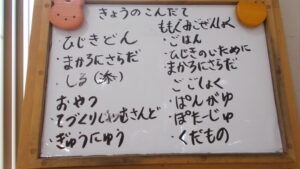 きょうのこんだて
・ひじきどん
・まかろにさらだ
・しる(添)
おやつ
・てづくりじゃむさんど
・ぎゅうにゅう
ももぐみごぜんしょく
・ごはん
・ひじきのいために
まかろにさらだ
ごごしょく
・ぱんがゆ
・ぽたーじゅ
・くだもの